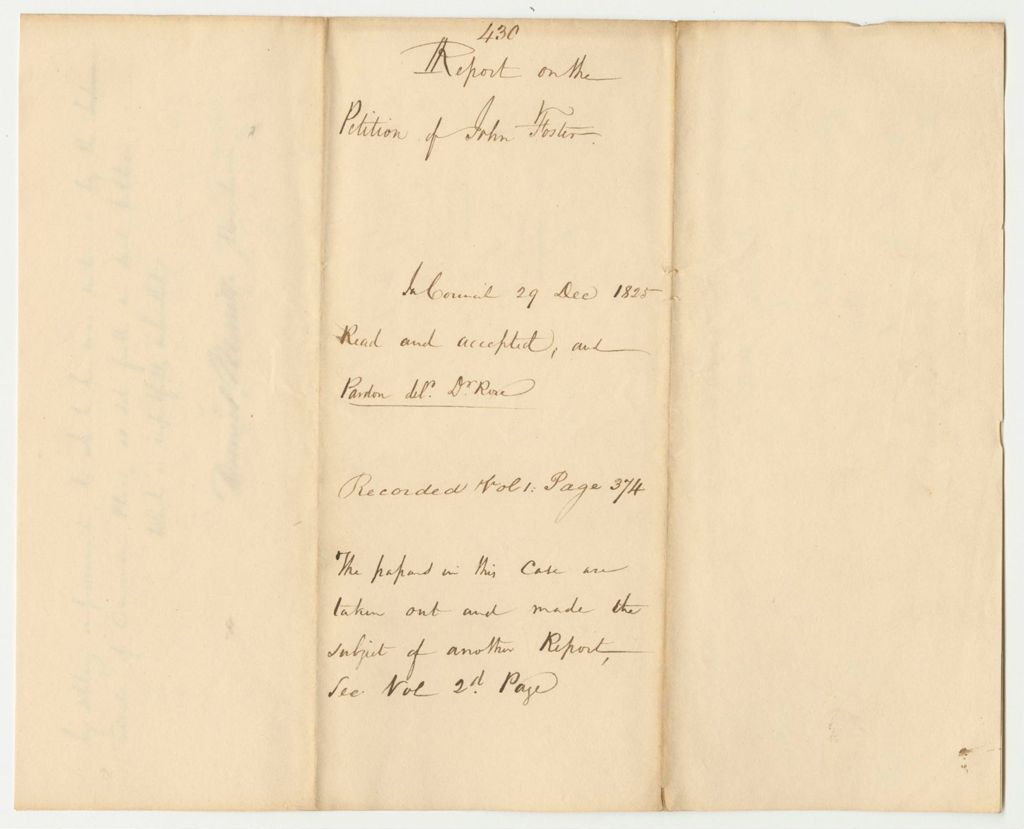 430
Report on the
Petition of John Foster.
In Council 29 Dec 1825
Read and accepted, and
Pardon del.d Dr Rose
Recorded Vol 1: Page 374
The papers in this Case are
taken out and made the
subject of another Report,
See Vol 2d Page